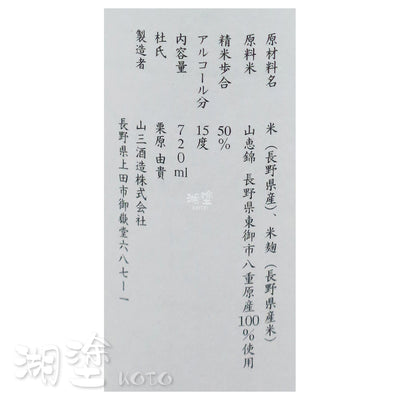 原材料名 米（長野県産）、米麹（長野県産米）
原料米 山恵錦 長野県東御市八重原産100%使用
精米歩合 50%
アルコール分 15度
内容量 720ml
杜氏 栗原 由貴
製造者 山三酒造株式会社
長野県上田市御嶽堂六八七ー一
湖塗
湖塗 KOTO